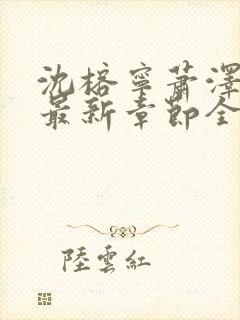 沈榕寧蕭澤
最新章節全
陸雲紅